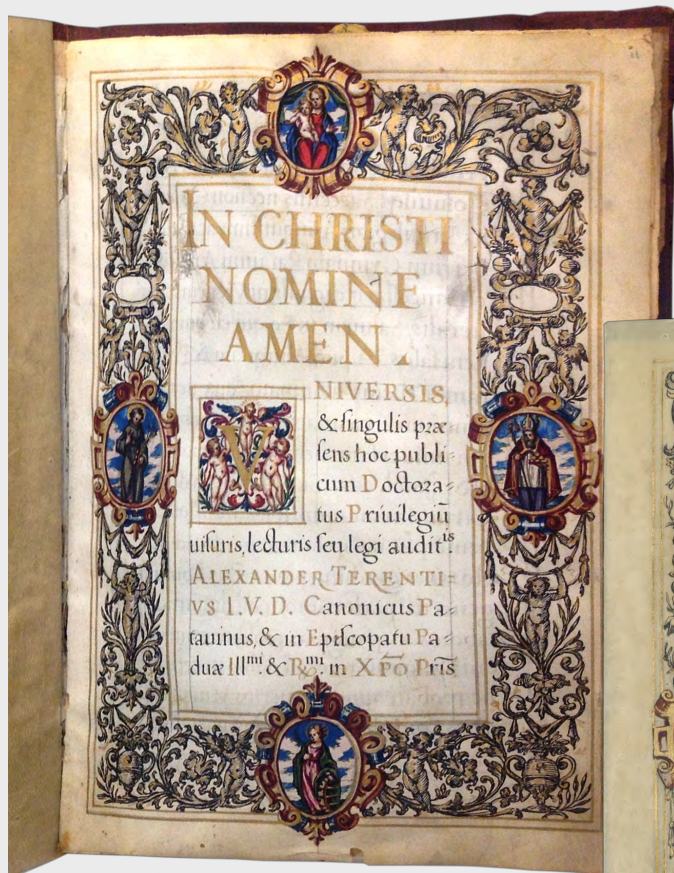 IN CHRISTI
NOMINE
AMEN.
VNIVERSIS,
& singulis præ
sens hoc publi-
cum Doctora-
tus Priuilegiũ
uisuris, lecturis seu legi audit^is.
ALEXANDER TERENTI-
VS I.V.D. Canonicus Pa-
tauinus, & in Episcopatu Pa-
duæ Ill^mi. & R^mi. in XPO Pris